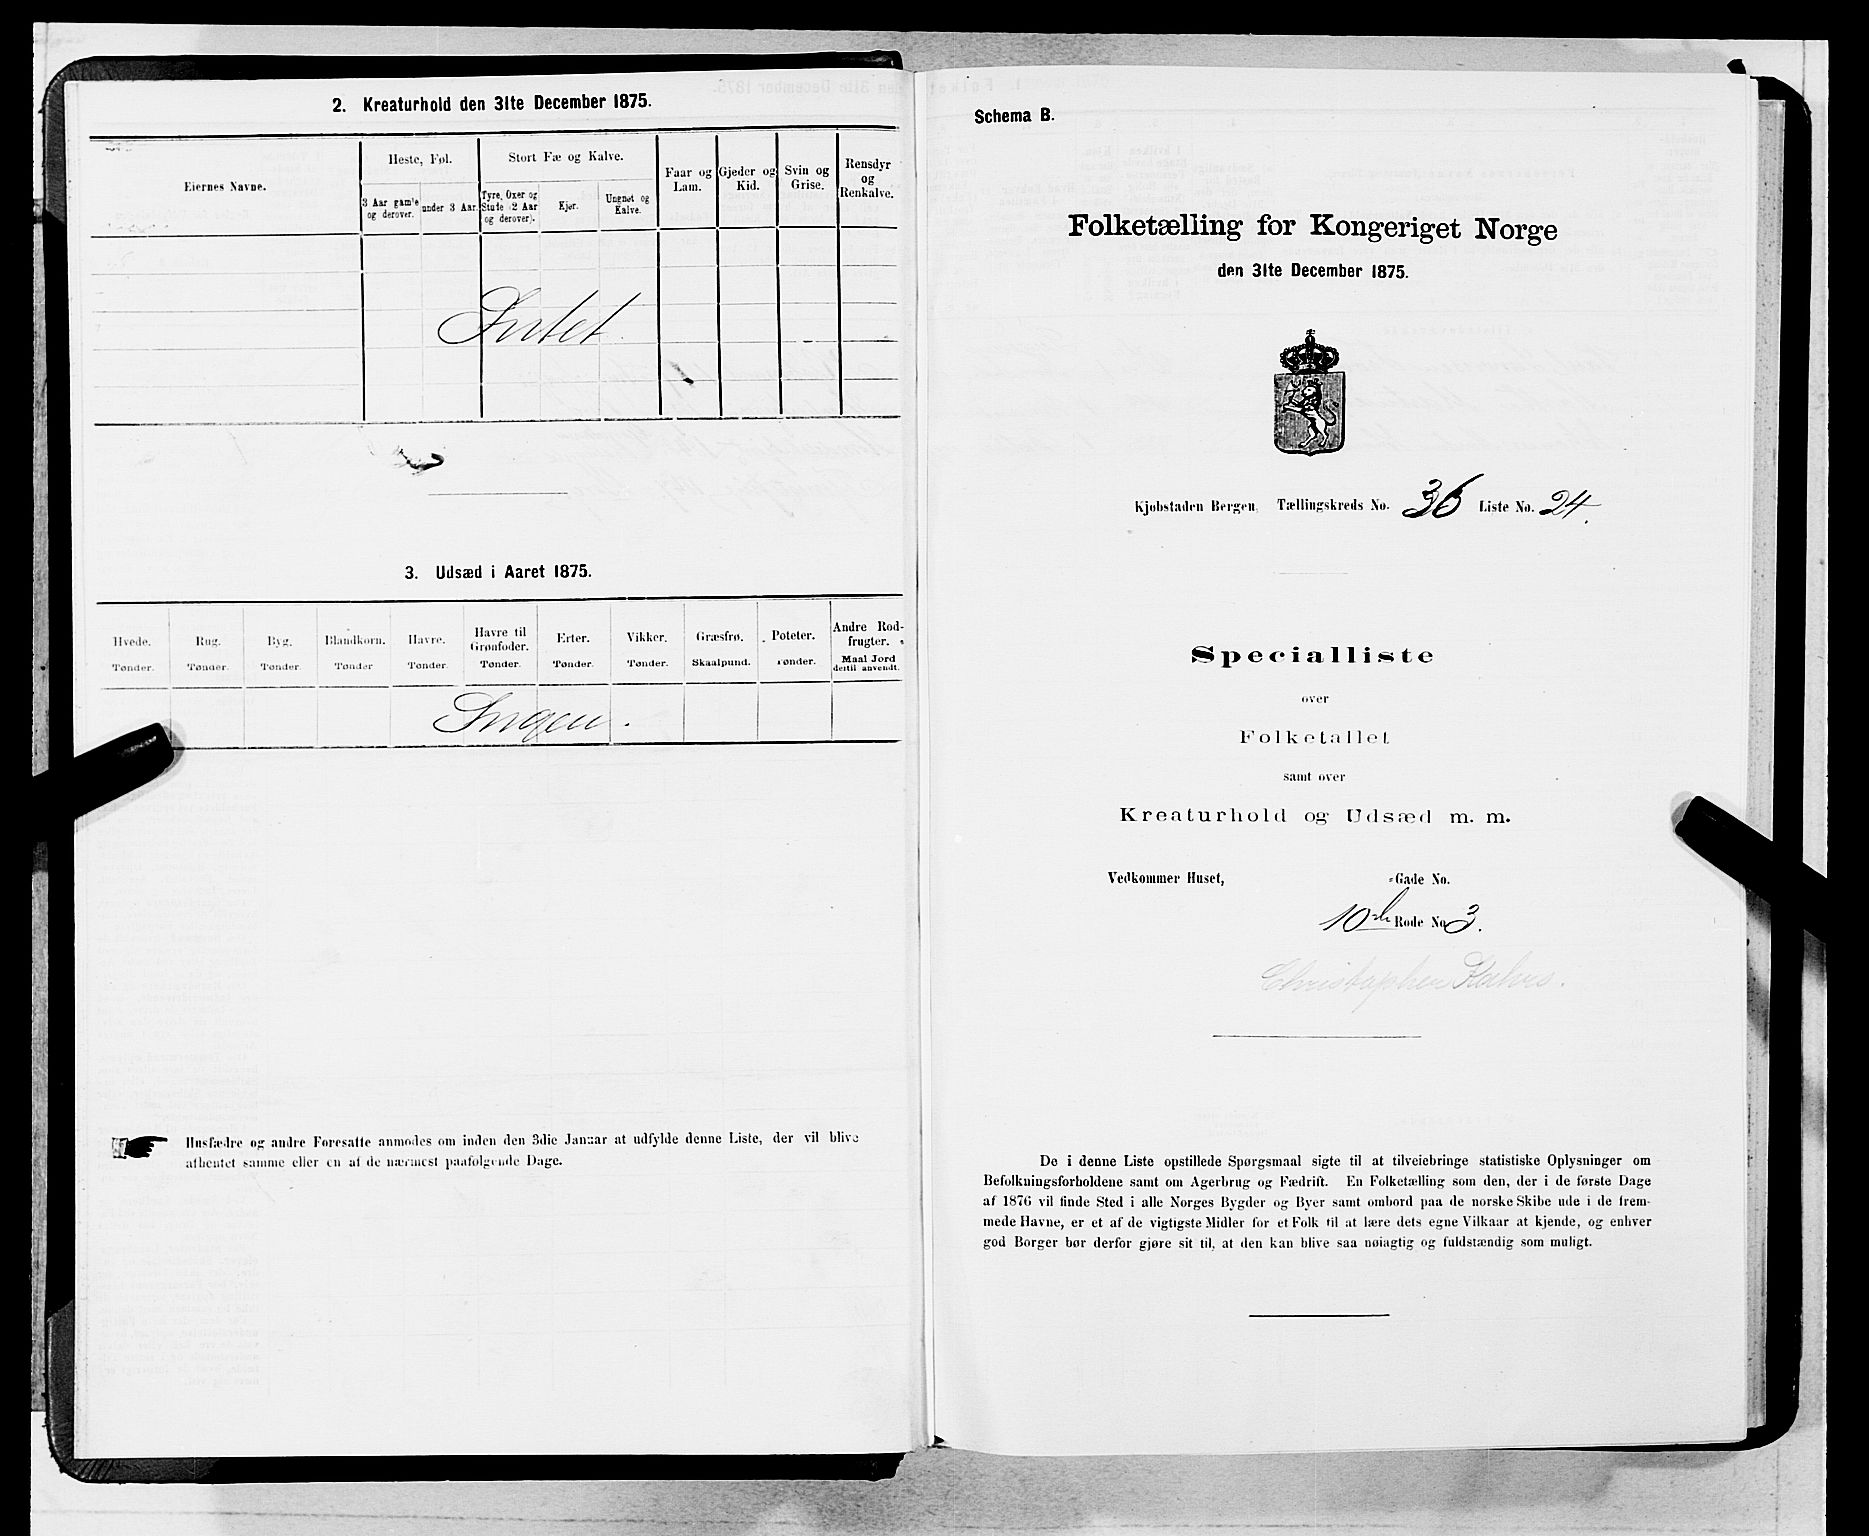 2. Kreaturhold den 31te December 1875.
Eiernes Navne.
Heste, Føl.
3 Aar gamle og derover.
under 3 Aar.
Stort Fæ og Kalve.
Tyre, Oxer og Stude (2 Aar og derover).
Kjør.
Ungnøt og Kalve.
Faar og Lam.
Gjeder og Kid.
Svin og Grise.
Rensdyr og Renkalve.
Intet
3. Udsæd i Aaret 1875.
Hvede. Tønder.
Rug. Tønder.
Byg. Tønder.
Blandkorn. Tønder
Havre. Tønder.
Havre til Grønfoder. Tønder.
Erter. Tønder.
Vikker. Tønder.
Græsfrø. Skaalpund.
Poteter. Tønder.
Andre Rodfrugter. Maal Jord dertil anvendt.
Ingen.
Husfædre og andre Foresatte anmodes om inden den 3die Januar at udfylde denne Liste, der vil blive
afhentet samme eller en af de nærmest paafølgende Dage.
Schema B.
Folketælling for Kongeriget Norge
den 31te December 1875.
Kjøbstaden Bergen, Tællingskreds No. 36 Liste No. 24.
Specialliste
over
Folketallet
samt over
Kreaturhold og Udsæd m. m.
Vedkommer Huset, -Gade No.
10de Rode No 3.
Christopher Kahrs.
De i denne Liste opstillede Spørgsmaal sigte til at tilveiebringe statistiske Oplysninger om
Befolkningsforholdene samt om Agerbrug og Fædrift. En Folketælling som den, der i de første Dage
af 1876 vil finde Sted i alle Norges Bygder og Byer samt ombord paa de norske Skibe ude i de frem-
mede Havne, er et af de vigtigste Midler for et Folk til at lære dets egne Vilkaar at kjende, og enhver
god Borger bør derfor gjøre sit til, at den kan blive saa nøiagtig og fuldstændig som muligt.